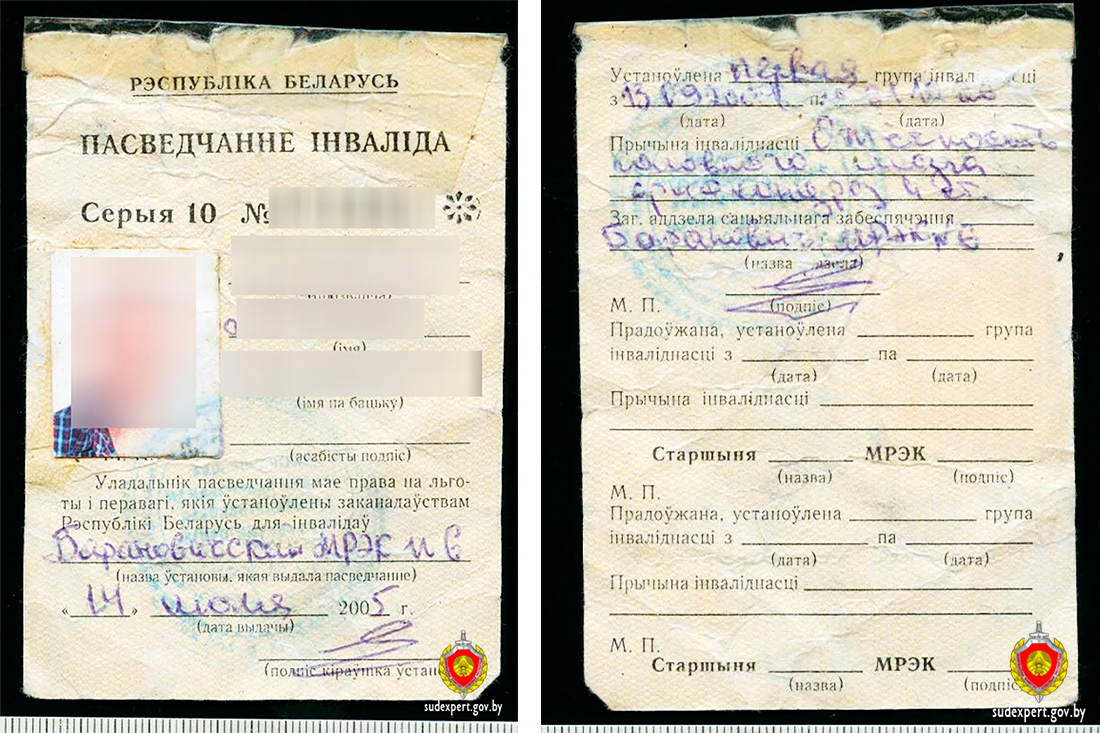 РЭСПУБЛІКА БЕЛАРУСЬ
ПАСВЕДЧАННЕ ІНВАЛІДА
Серыя 10 №
(імя)
(імя па бацьку)
(асабісты подпіс)
Уладальнік пасведчання мае права на льго-
ты і перавагі, якія ўстаноўлены заканадаўствам
Рэспублікі Беларусь для інвалідаў
Барановичская МРЭК N 6
(назва ўстановы, якая выдала пасведчанне)
«14» июля 2005 г.
(дата выдачы)
(подпіс кіраўніка ўстан
sudexpert.gov.by
Устаноўлена первая група інвал сці
з 13.09.200 па
(дата) (дата)
Прычына інваліднасці Отечность
головного мозга
Заг. аддзела сацыяльнага забеспячэння
Баранович МРЭК N 6
(назва дзела)
(подпіс)
М. П.
Прадоўжана, устаноўлена група
інваліднасці з па
(дата) (дата)
Прычына інваліднасці
Старшыня МРЭК
(назва) (подпіс)
М. П.
Прадоўжана, устаноўлена група
інваліднасці з па
(дата) (дата)
Прычына інваліднасці
М. П.
Старшыня МРЭК
(назва) (подпіс
sudexpert.gov.by